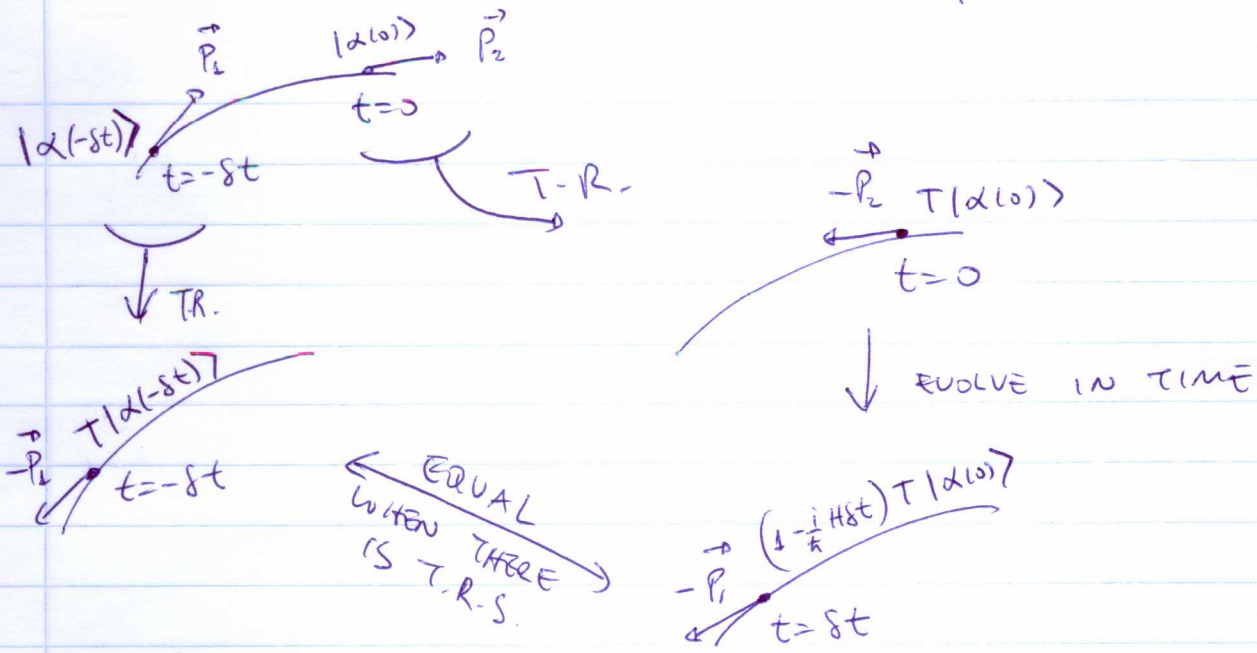 |α(0)⟩
P⃗₁
P⃗₂
t=0
|α(-δt)⟩
t=-δt
T-R.
-P⃗₂ T|α(0)⟩
t=0
T.R.
EVOLVE IN TIME
T|α(-δt)⟩
-P⃗₁
t=-δt
EQUAL
WHEN THERE
IS T.R.S.
(1-i/ħ Hδt) T|α(0)⟩
-P⃗₁
t=δt